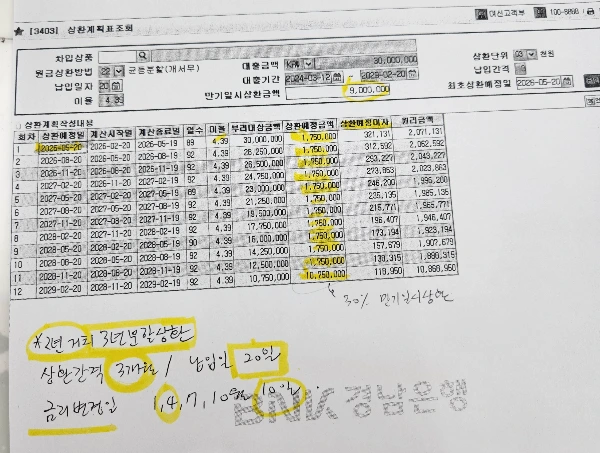 ★ [3403] 상환계획표조회
여신고객부 100-8888
차입상품
원금상환방법 22 균등분할(개서무)
납입일자 20
이율 4.39
대출금액 KRW 30,000,000
대출기간 2024-03-12 ~ 2029-02-20
만기일시상환금액 9,000,000
상환단위 03 천원
납입간격 3
최초상환예정일 2026-05-20
상환계획작성내용
회차 상환예정일 계산시작일 계산종료일 일수 이율 부리대상금액 상환예정금액 상환예정이자 원리금액
1 2026-05-20 2026-02-20 2026-05-19 89 4.39 30,000,000 1,750,000 321,131 2,071,131
2 2026-08-20 2026-05-20 2026-08-19 92 4.39 28,250,000 1,750,000 312,592 2,062,592
3 2026-11-20 2026-08-20 2026-11-19 92 4.39 26,500,000 1,750,000 293,227 2,043,227
4 2027-02-20 2026-11-20 2027-02-19 92 4.39 24,750,000 1,750,000 273,863 2,023,863
5 2027-05-20 2027-02-20 4.39 23,000,000 1,750,000 246,200 1,996,200
6 2027-08-20 2027-05-20 2027-08-19 92 4.39 21,250,000 1,750,000 235,135 1,985,135
7 2027-11-20 2027-08-20 2027-11-19 92 4.39 19,500,000 1,750,000 215,771 1,965,771
8 2028-02-20 2027-11-20 2028-02-19 92 4.39 17,750,000 1,750,000 196,407 1,946,407
9 2028-05-20 2028-02-20 2028-05-19 4.39 16,000,000 1,750,000 173,194 1,923,194
10 2028-08-20 2028-05-20 2028-08-19 92 4.39 14,250,000 1,750,000 157,679 1,907,679
11 2028-11-20 2028-08-20 2028-11-19 92 4.39 12,500,000 1,750,000 138,315 1,888,315
12 2029-02-20 2028-11-20 2029-02-19 92 4.39 10,750,000 10,750,000 118,950 10,868,950
30% 만기일시상환
*2년 거치 3년 분할상환
상환간격 3개월 / 납입일 20일
금리변경일 1, 4, 7, 10월 10일.
BNK 경남은행